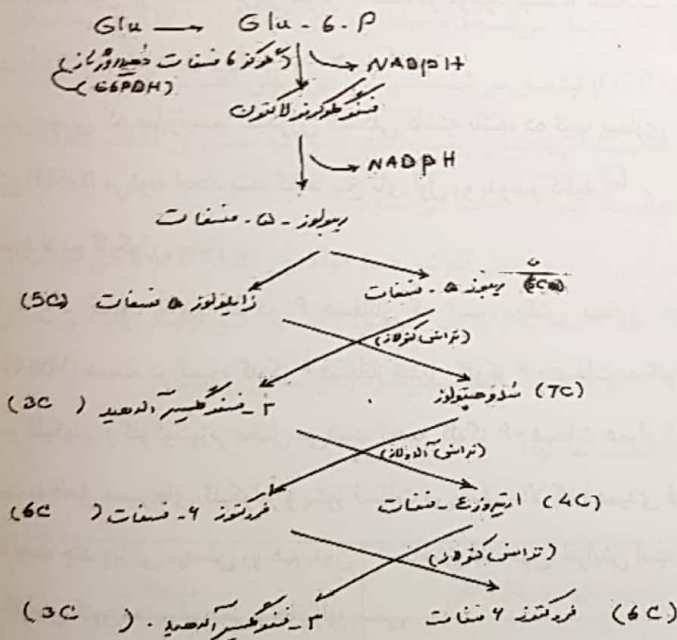 Glu → Glu-6-P
(گلوکز ۶ فسفات دهیدروژناز) NADPH
(G6PDH)
فسفوگلوکونولاکتون
NADPH
ریبولوز-۵-فسفات
(5C) زایلولوز ۵ فسفات ریبوز ۵-فسفات (5C)
(ترانس کتولاز)
(3C) ۳-فسفوگلیسرآلدهید سدوهپتولوز (7C)
(ترانس آلدولاز)
(6C) فروکتوز ۶-فسفات اریتروز ۴-فسفات (4C)
(ترانس کتولاز)
(3C) ۳-فسفوگلیسرآلدهید . فروکتوز ۶ فسفات (6C)